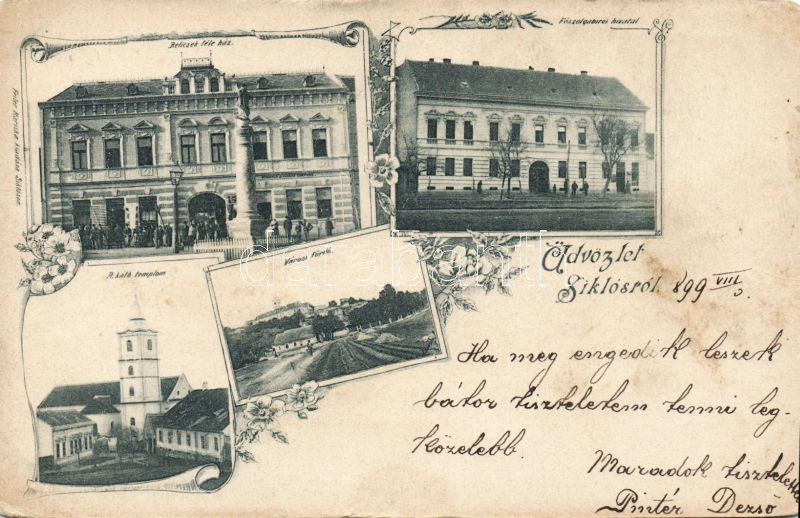 Beliczek féle ház.
Főszolgabírói hivatal
Feller Mariska kiadása Siklóson.
R. kath. templom
Városi fürdő
darabanth
Üdvözlet
Siklósról. 899 VIII/5
Ha meg engedik leszek
bátor tiszteletem tenni leg-
közelebb.
Maradok tisztelettel
Pintér Dezső